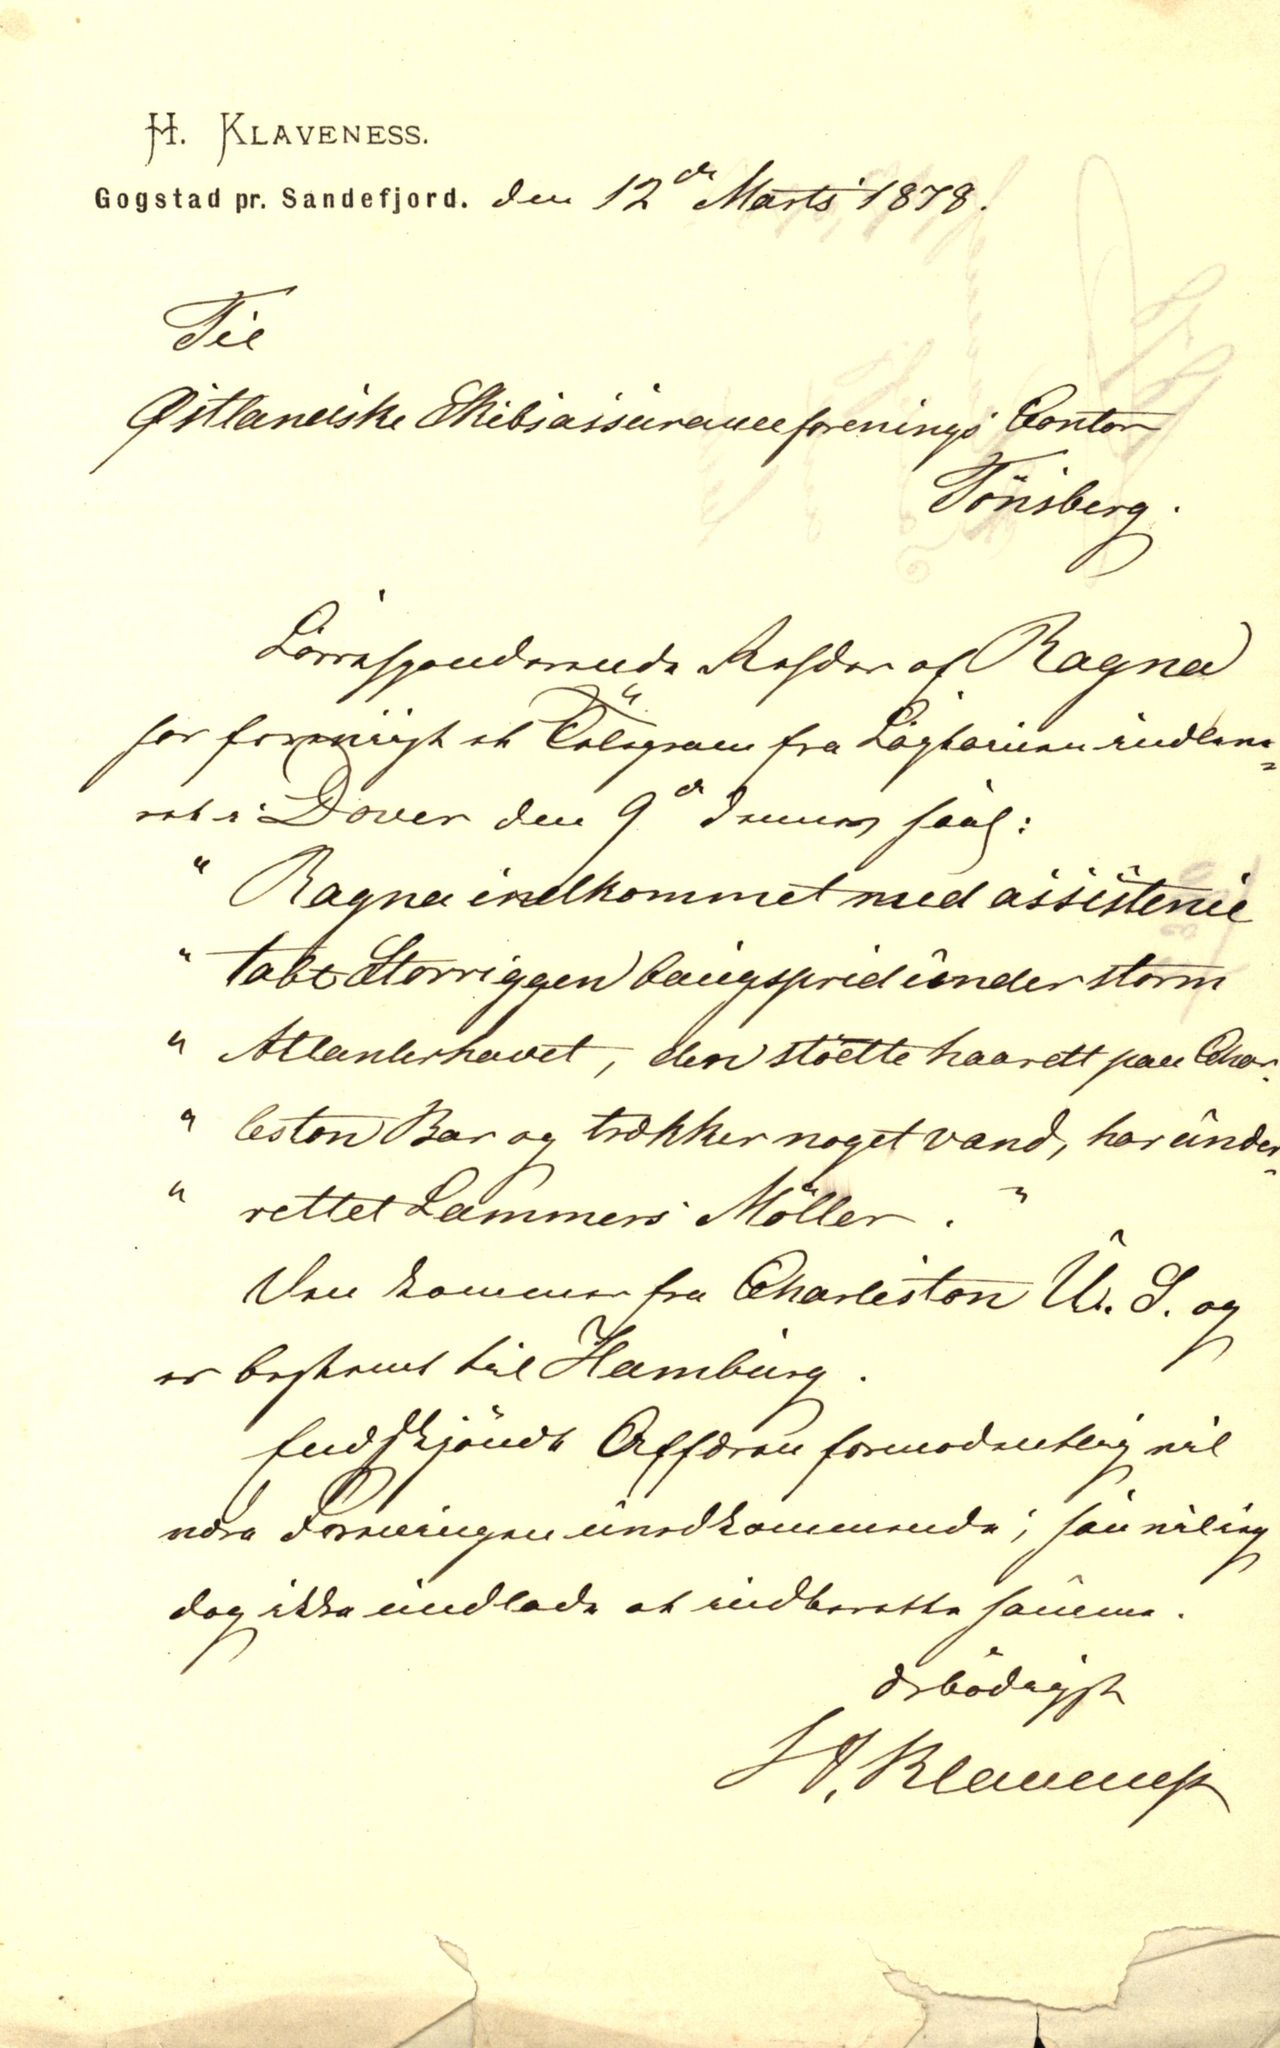 H. KLAVENESS.
Gogstad pr. Sandefjord. den 12de Marts 1878.
Til
Østlandske Skibsassuranceforenings Contor
Tönsberg.
Corresponderende Rheder af Ragna
har foreviist et Telegram fra Captainen indleve-
ret i Dover den 9de dennes saal:
" Ragna indkommet med assistence
" tabt Storriggen baugsprid under storm
" Atlanterhavet, den stödte haardt paa Char-
" leston Bar og trækker noget vand, har under-
" rettet Lammers Möller. "
Den kommer fra Charleston U. S. og
er bestemt til Hamburg.
Endskjöndt Affæren formodentlig vil
være Foreningen uvedkommende, saa vil jeg
dog ikke undlade at indberette samme.
Ærbödigst
H. Klaveness